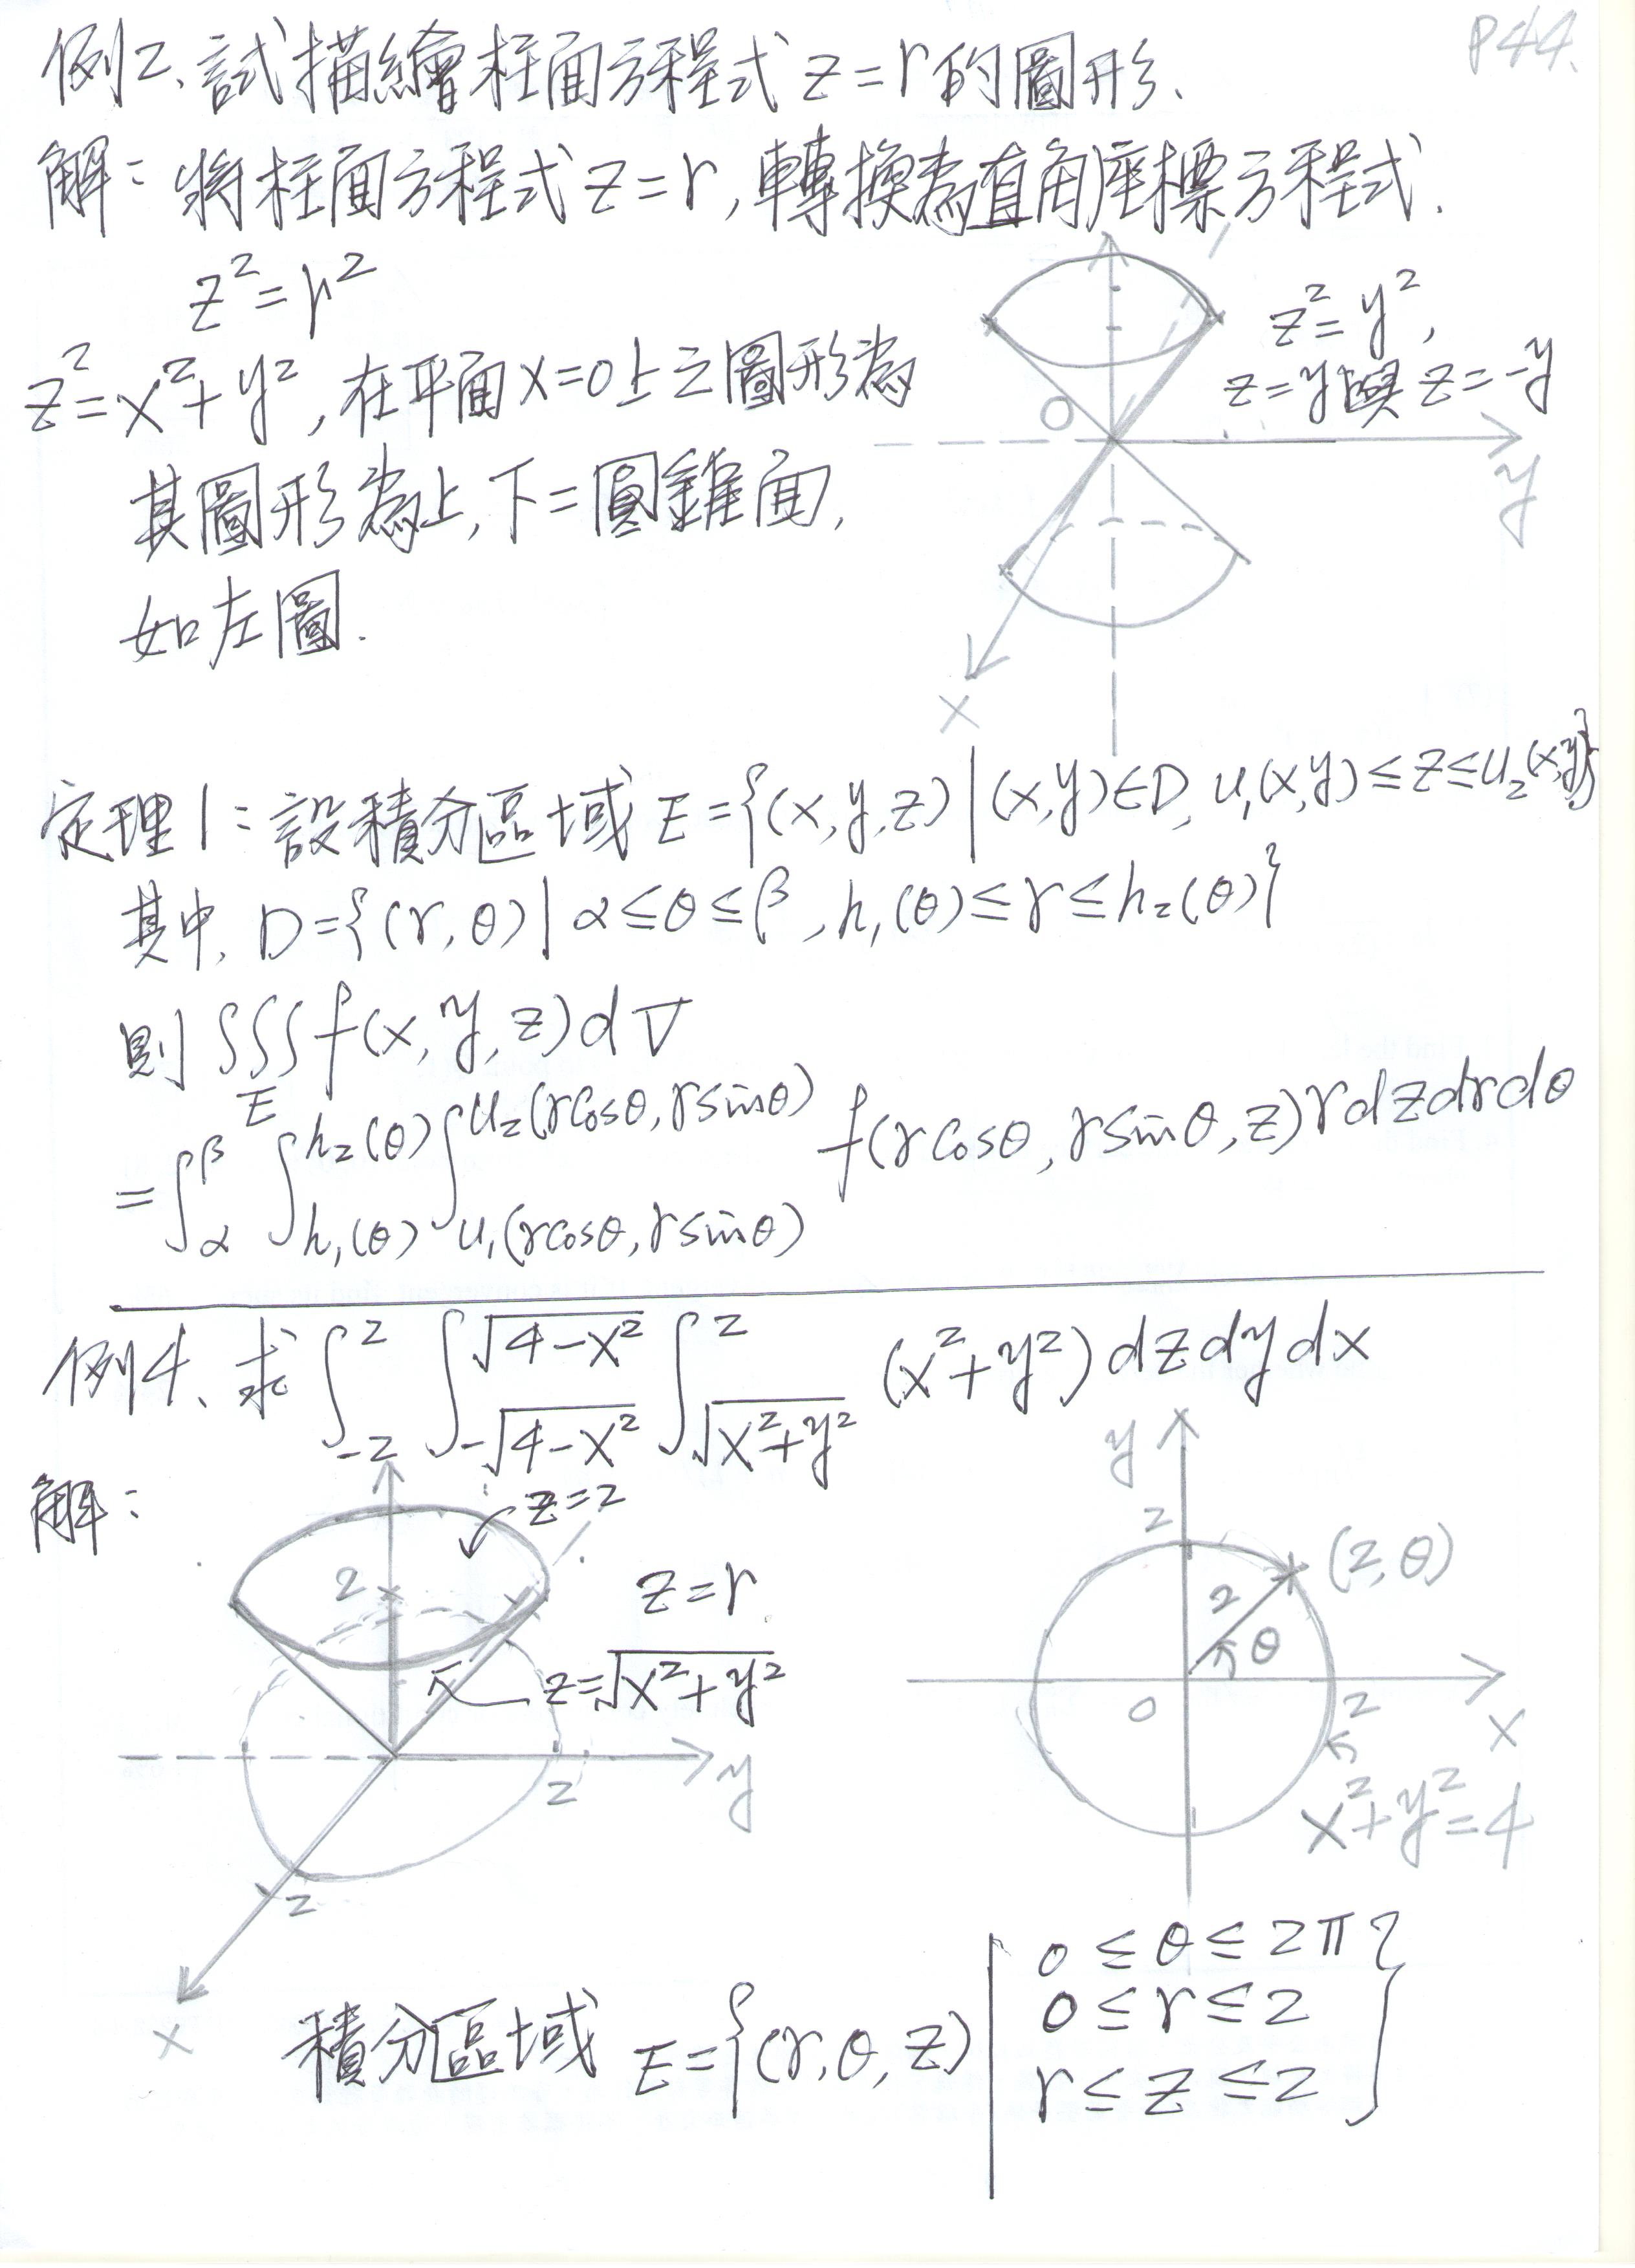 P44.
例2、試描繪柱面方程式 z=r的圖形、
解：將柱面方程式 z=r, 轉換為直角座標方程式.
z²=r²
z²=x²+y², 在平面x=0上之圖形為
z²=y²,
z=y與 z=-y
其圖形為上,下二圓錐面,
如左圖.
O
y
x
定理1：設積分區域 E={(x,y,z)|(x,y)∈D, u₁(x,y)≤z≤u₂(x,y)}
其中, D={(r,θ)|α≤θ≤β, h₁(θ)≤r≤h₂(θ)}
則 ∫∫∫_E f(x,y,z)dV
=∫_α^β ∫_{h₁(θ)}^{h₂(θ)} ∫_{u₁(rcosθ,rsinθ)}^{u₂(rcosθ,rsinθ)} f(rcosθ,rsinθ,z)rdzdrdθ
例4、求 ∫_{-2}^{2} ∫_{-√(4-x²)}^{√(4-x²)} ∫_{√(x²+y²)}^{2} (x²+y²)dzdydx
解：
z=2
2
z=r
z=√(x²+y²)
y
2
2
x
y
2
(2,θ)
2
θ
0
2
x
x²+y²=4
積分區域 E={(r,θ,z)| 0≤θ≤2π
0≤r≤2
r≤z≤2}